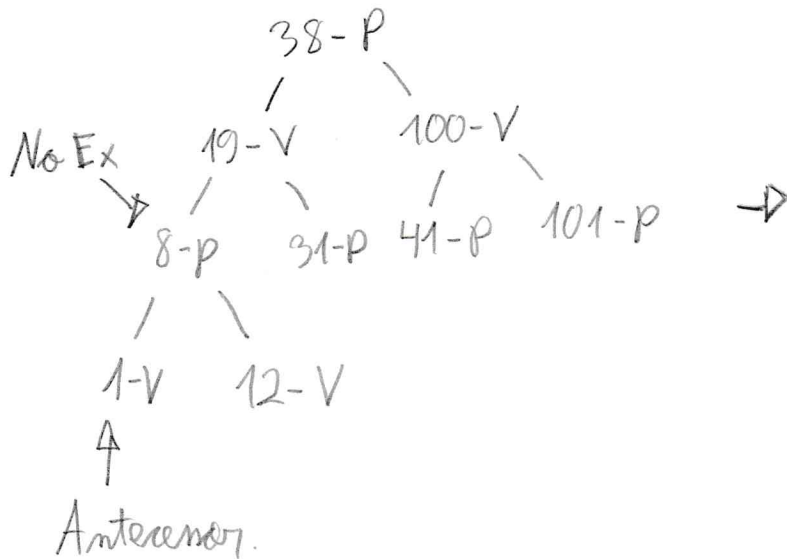 38-P
19-V 100-V
No Ex
8-p 31-P 41-P 101-P
1-V 12-V
Antecessor.